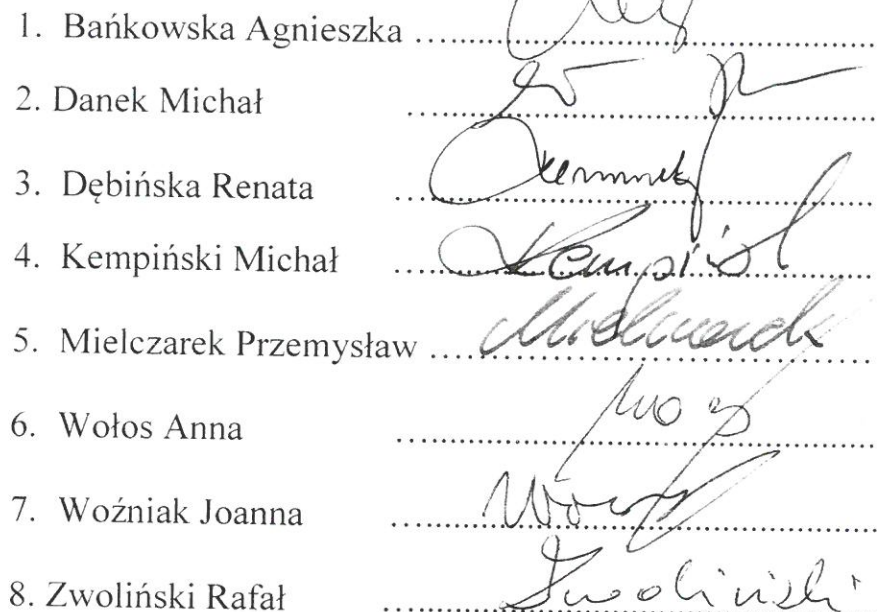 1. Bańkowska Agnieszka ........................................
2. Danek Michał ........................................
3. Dębińska Renata ........................................
4. Kempiński Michał ........................................
5. Mielczarek Przemysław ........................................ Mielczarek
6. Wołos Anna ........................................
7. Woźniak Joanna ........................................
8. Zwoliński Rafał ........................................ Zwoliński